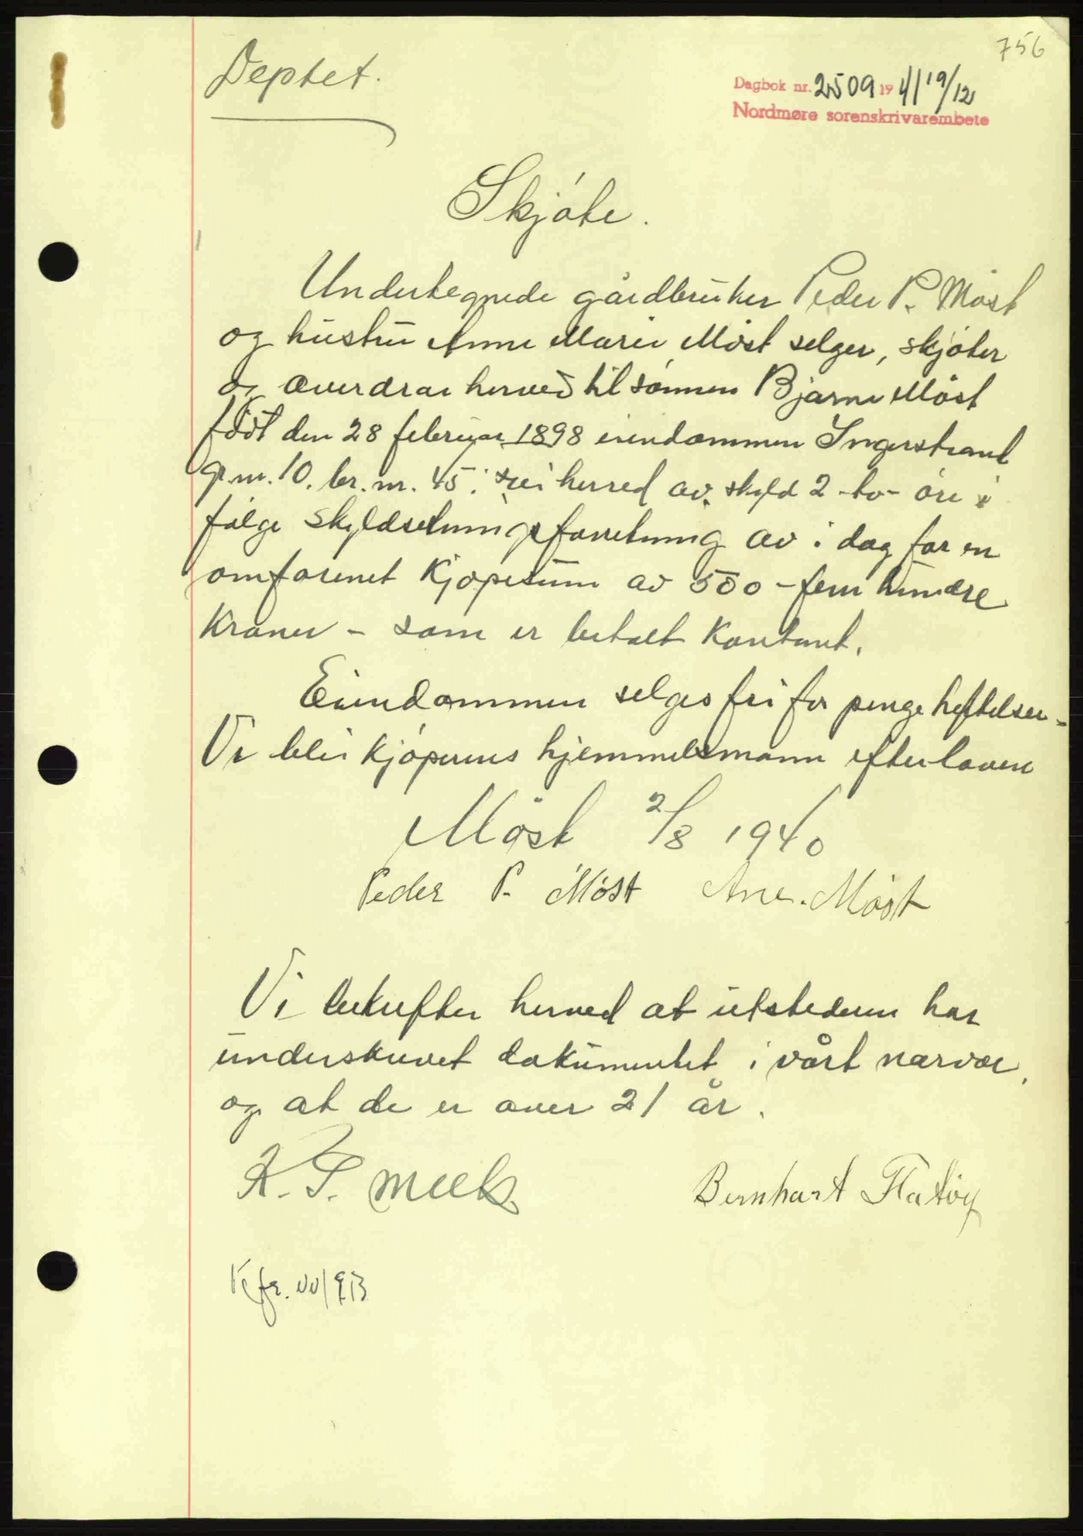 756
Deptet.
Dagbok nr. 2509 1941 19/12
Nordmøre sorenskrivarembete
Skjøte.
Undertegnede gårdbruker Peder P. Møst
og hustru Anne Marie Møst selger, skjøter
og overdrar herved til sønnen Bjarne Møst
født den 28 februar 1898 eiendommen Ingerstrand
gr.nr. 10. br.nr. 45. i herred av skyld 2 -to- øre i
følge skyldsetningsforretning av i dag for en
omforenet kjøpesum av 500 - fem hundre
kroner - som er betalt kontant.
Eiendommen selges fri for penge heftelser -
Vi blir kjøperens hjemmelsmann efter loven
Møst 2/8 1940
Peder P. Møst Ane. Møst
Vi bekrefter herved at utstederen har
underskrevet dokumentet i vårt nærvær,
og at de er over 21 år.
Bernhart Flatøy